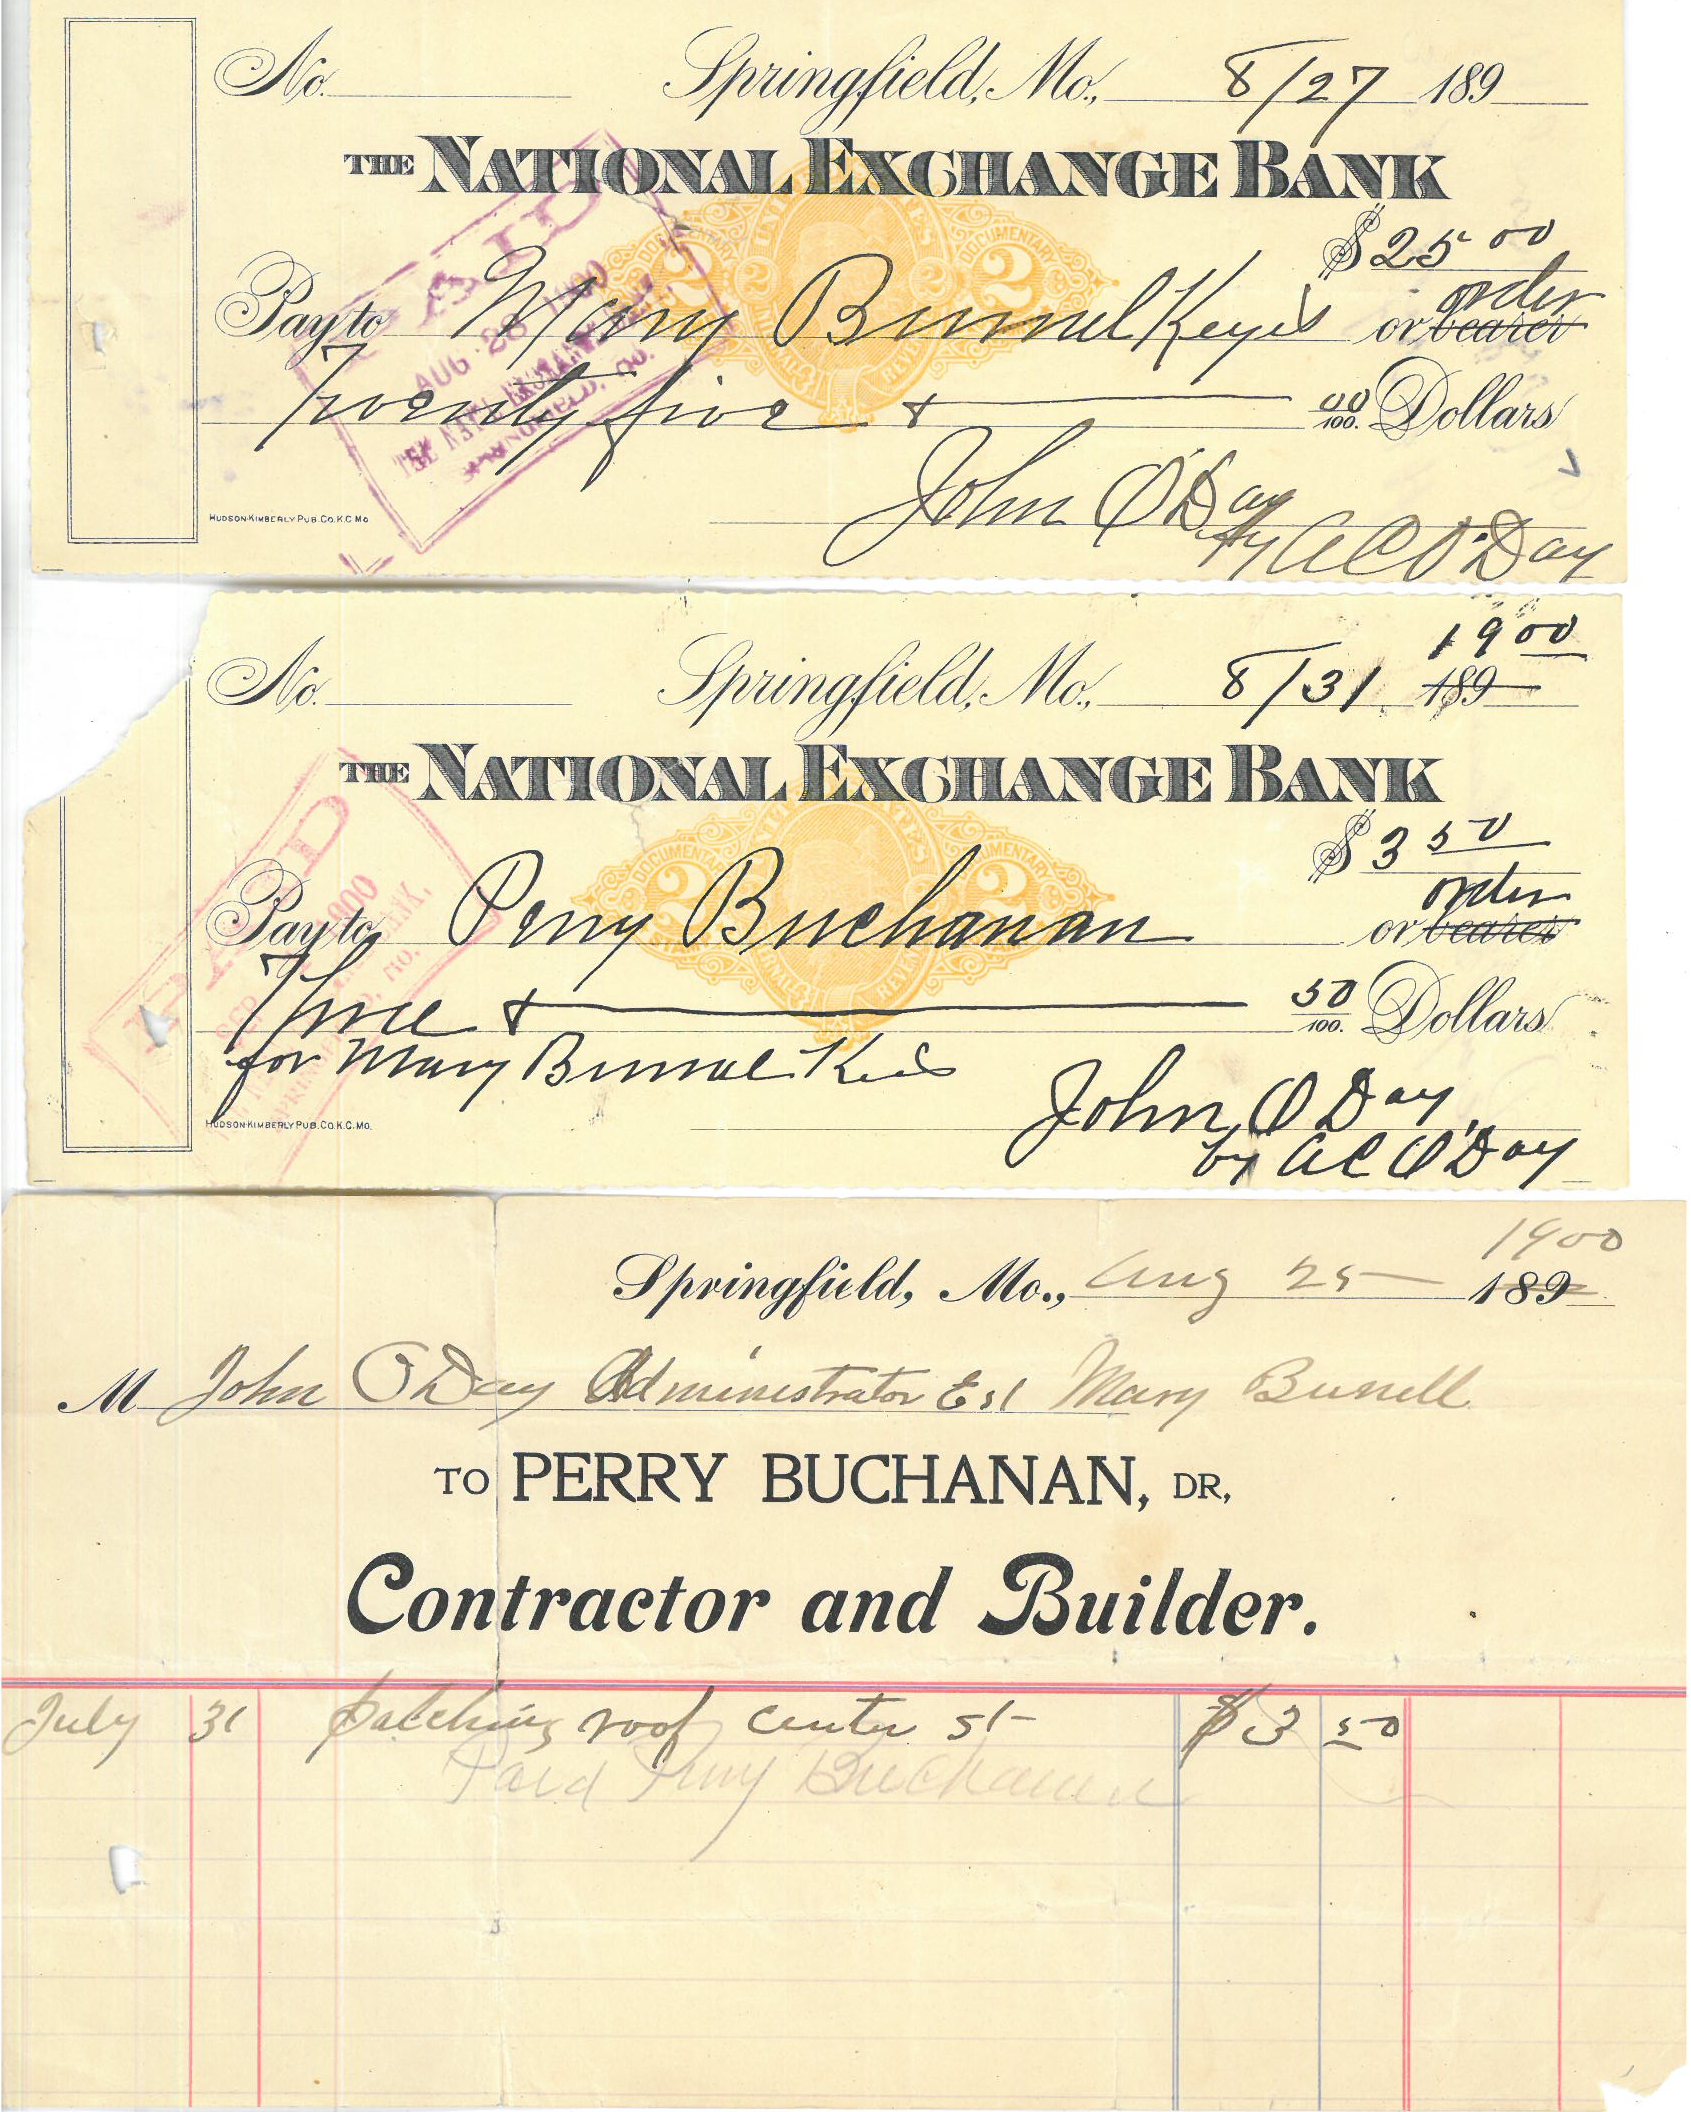 No. Springfield, Mo., 8/27 189
THE NATIONAL EXCHANGE BANK
$25 00
Pay to Mary Bunnel Keyes or bearer order
Twenty five & 00/100. Dollars
John O'Day
by A C O'Day
HUDSON-KIMBERLY PUB. CO. K.C. MO
PAID
AUG 28 1900
THE NAT'L EXCHANGE BANK,
SPRINGFIELD, MO.
UNITED STATES
DOCUMENTARY
DOCUMENTARY
2 2 2 2
INTERNAL REVENUE
1900
No. Springfield, Mo., 8/31 189
THE NATIONAL EXCHANGE BANK
$3 50
Pay to Perry Buchanan or bearer order
Three & 50/100. Dollars
for Mary Bunnel Keis
John O Day
by A C O'Day
HUDSON-KIMBERLY PUB. CO. K.C. MO.
PAID
SEP 1900
BANK,
SPRINGFIELD, MO.
DOCUMENTARY
DOCUMENTARY
2 2 2 2
1900
Springfield, Mo., Aug 25 189
M John O Day Administrator Est Mary Bunell
TO PERRY BUCHANAN, DR,
Contractor and Builder.
July 31 patching roof center st $3 50
Paid Perry Buchanan